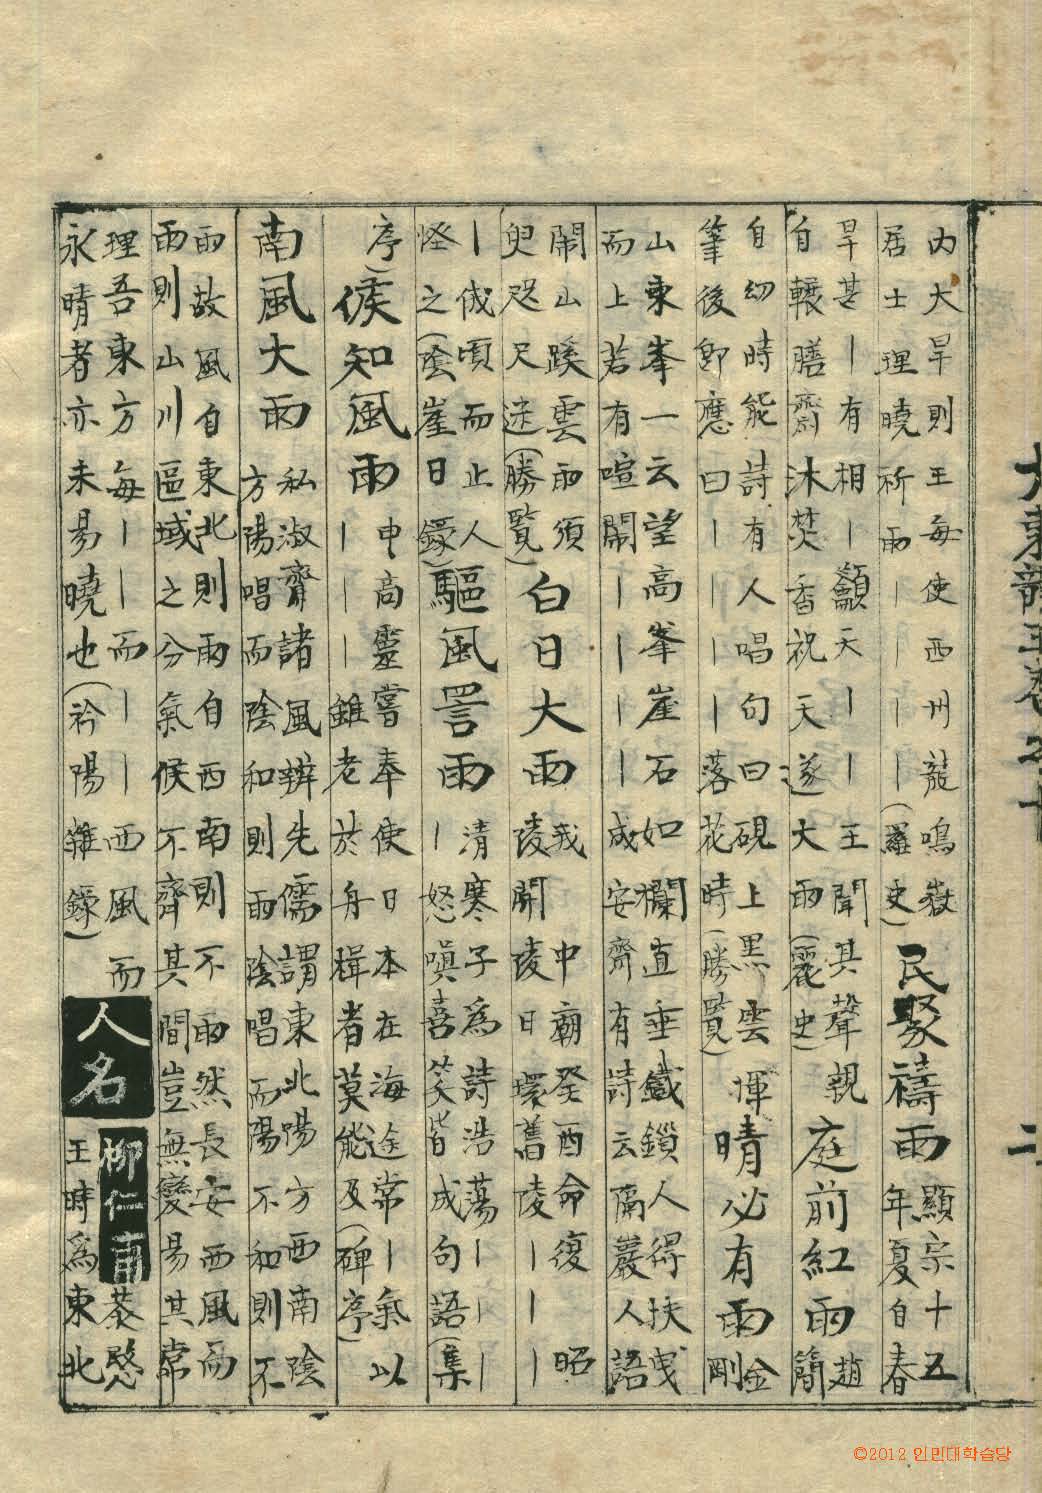 大東韻玉卷之十 二
內大旱則王每使西州龍鳴嶽
居士理曉祈雨｜｜｜(羅史)
民聚禱雨
顯宗十五
年夏自春
旱甚｜有相｜籲天｜｜王聞其聲親
自輟膳齋沐焚香祝天遂大雨(麗史)
庭前紅雨
趙
簡
自幼時能詩有人唱句曰硯上黑雲揮
筆後卽應曰｜｜｜落花時(勝覽)
晴必有雨
金
剛
山東峯一云望高峯崖石如欄直垂鐵鎖人得扶曳
而上若有喧鬧｜｜｜｜成安齋有詩云厲巖人語
鬧山蹊雲雨須
臾咫尺迷(勝覽)
白日大雨
我 中廟癸酉命復 昭
陵開陵日環舊陵｜｜｜
｜俄頃而止人
怪之(陰崖日錄)
驅風詈雨
清寒子爲詩浩蕩｜｜｜
｜怒嗔喜笑皆成句語(集
序)
候知風雨
申高靈嘗奉使日本在海途常｜氣以
｜｜｜雖老於舟楫者莫能及(碑序)
南風大雨
私淑齋諸風辨先儒謂東北陽方西南陰
方陽唱而陰和則雨陰唱而陽不和則不
雨故風自東北則雨自西南則不雨然長安西風而
雨則山川區域之分氣候不齊其間豈無變易其常
理吾東方每｜｜而｜｜西風而
永晴者亦未易曉也(衿陽雜錄)
人名
柳仁甫
恭愍
王時爲東北
©2012 인민대학습당